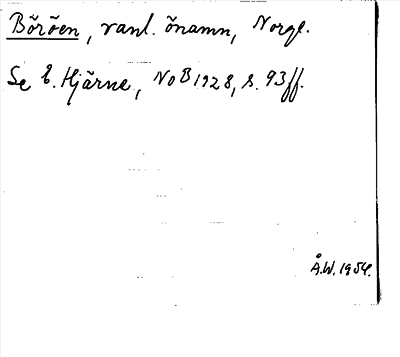 Böröen, vanl. önamn, Norge.
Se E. Hjärne, NoB 1928, s. 93ff.
Å.W. 1954.